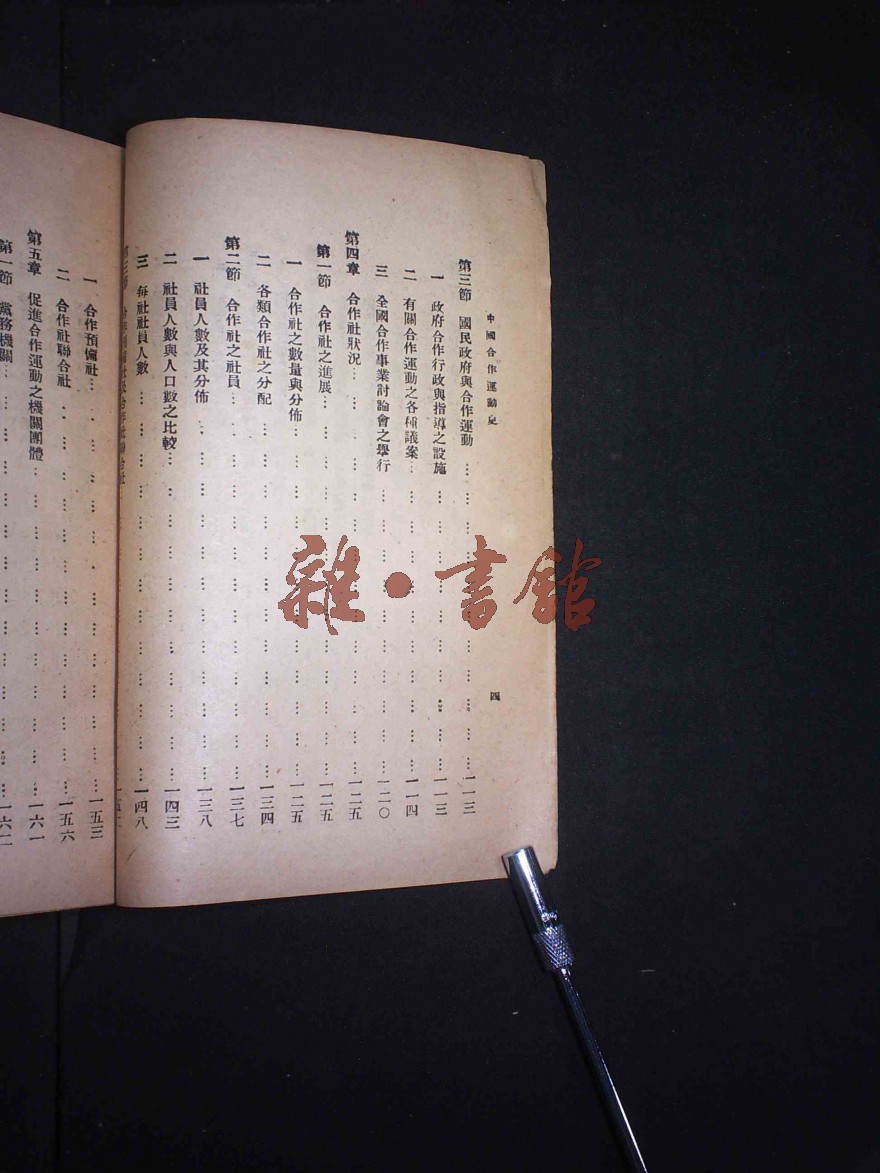 中國合作運動史
四
第三節 國民政府與合作運動 … 一一三
一 政府合作行政與指導之設施 … 一一三
二 有關合作運動之各種議案 … 一一四
三 全國合作事業討論會之舉行 … 一二〇
第四章 合作社狀況 … 一二五
第一節 合作社之進展 … 一二五
一 合作社之數量與分佈 … 一二五
二 各類合作社之分配 … 一三四
第二節 合作社之社員 … 一三七
一 社員人數及其分佈 … 一三八
二 社員人數與人口數之比較 … 一四三
三 每社社員人數 … 一四八
一 合作預備社 … 一五三
二 合作社聯合社 … 一五六
第五章 促進合作運動之機關團體 … 一六一
第一節 黨務機關 … 一六二
雜·書館